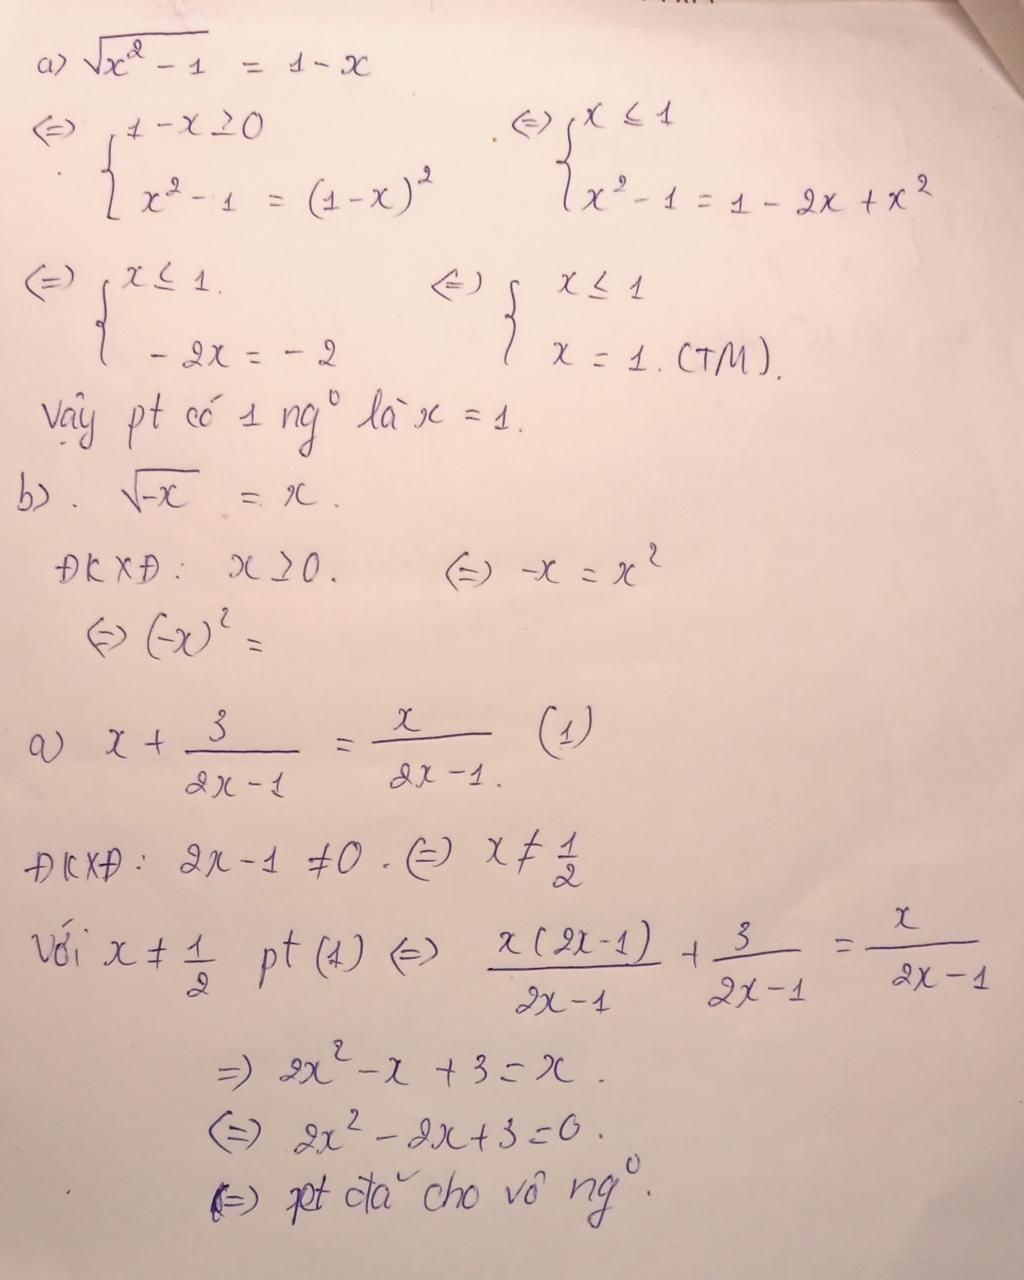 a) √(x² - 1) = 1 - x
(=) { 1 - x ≥ 0 (=) { x ≤ 1
x² - 1 = (1 - x)² x² - 1 = 1 - 2x + x²
(=) { x ≤ 1. (=) { x ≤ 1
- 2x = - 2 x = 1. (TM).
Vậy pt có 1 ng⁰ là x = 1.
b). √(-x) = x.
ĐKXĐ: x ≥ 0. (=) -x = x²
(=) (-x)² =
a) x + 3/(2x - 1) = x/(2x - 1). (1)
ĐKXĐ: 2x - 1 ≠ 0. (=) x ≠ 1/2
Với x ≠ 1/2 pt (1) (=) x(2x - 1)/(2x - 1) + 3/(2x - 1) = x/(2x - 1)
=) 2x² - x + 3 = x.
(=) 2x² - 2x + 3 = 0.
(=) pt đã cho vô ng⁰.